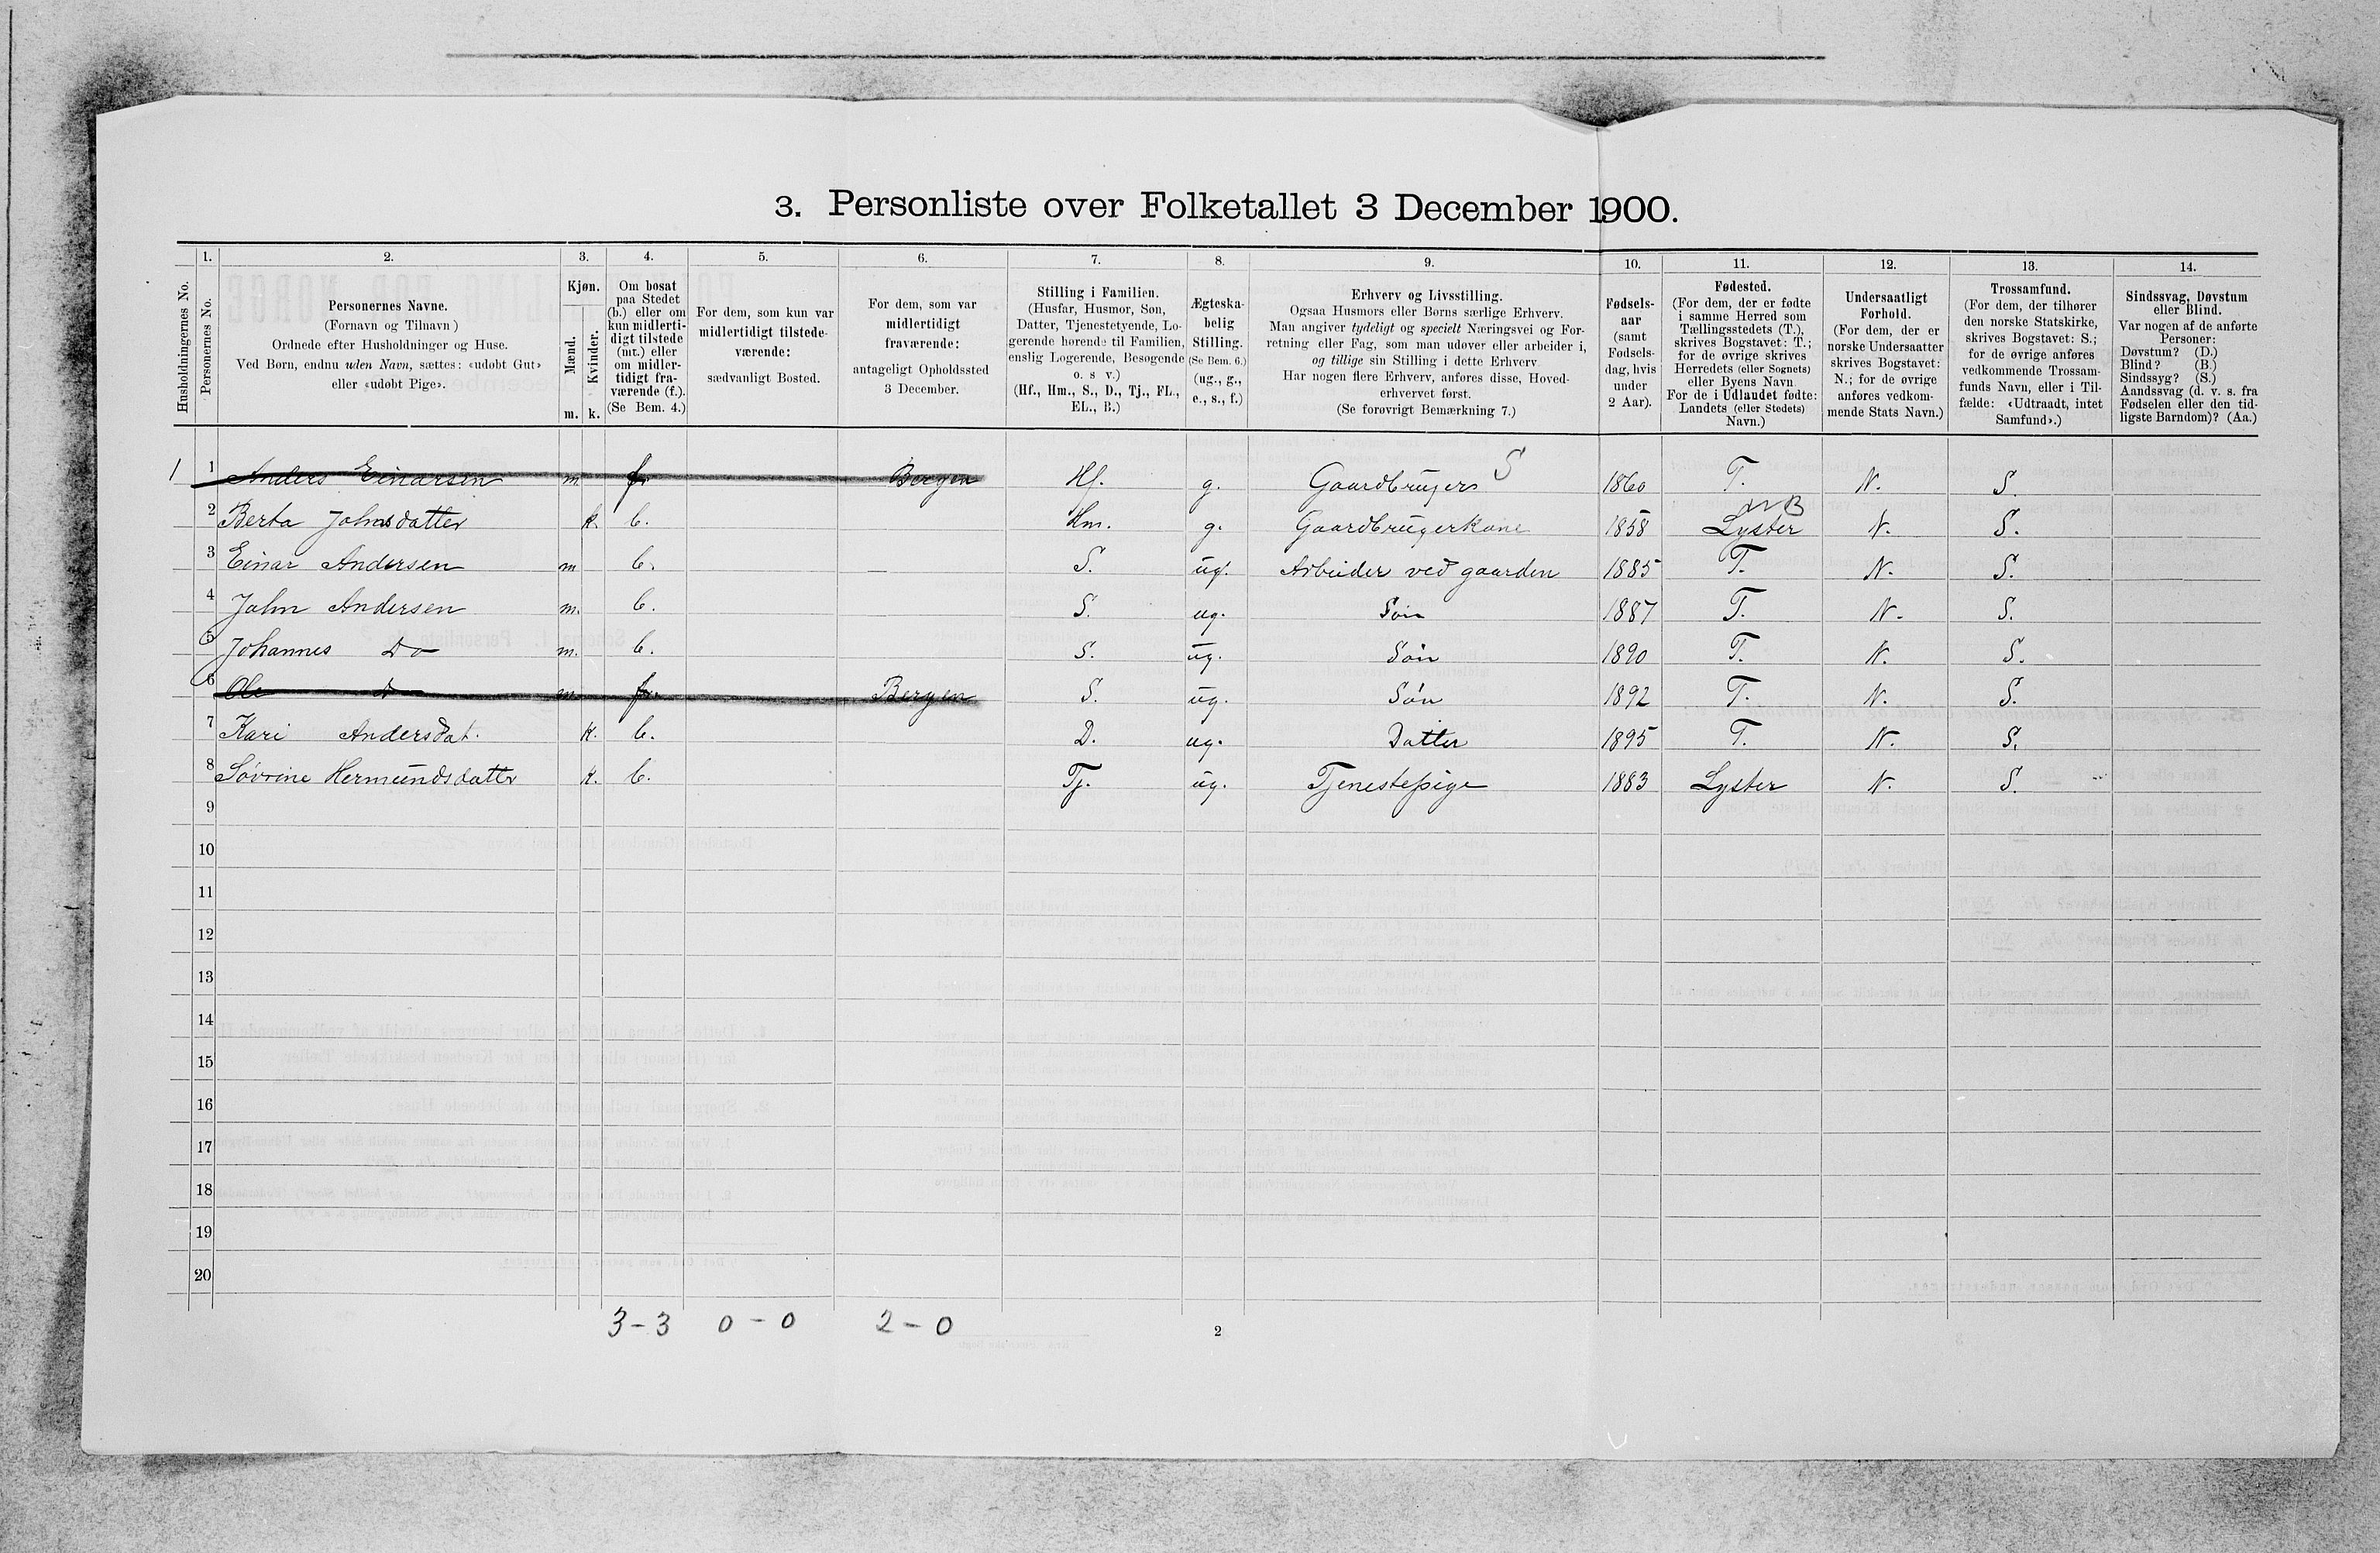 3. Personliste over Folketallet 3 December 1900.
1. 2. 3. 4. 5. 6. 7. 8. 9. 10. 11. 12. 13. 14.
Husholdningernes No.
Personernes No.
Personernes Navne.
(Fornavn og Tilnavn)
Ordnede efter Husholdninger og Huse.
Ved Børn, endnu uden Navn, sættes: «udøbt Gut»
eller «udøbt Pige».
Kjøn.
Mænd.
Kvinder.
m. k.
Om bosat
paa Stedet
(b.) eller om
kun midlerti-
digt tilstede
(mt.) eller
om midler-
tidigt fra-
værende (f.).
(Se Bem. 4.)
For dem, som kun var
midlertidigt tilstede-
værende:
sædvanligt Bosted.
For dem, som var
midlertidigt
fraværende:
antageligt Opholdssted
3 December.
Stilling i Familien.
(Husfar, Husmor, Søn,
Datter, Tjenestetyende, Lo-
gerende hørende til Familien,
enslig Logerende, Besøgende
o. s v.)
(Hf., Hm., S., D., Tj., FL.,
EL., B.)
Ægteska-
belig
Stilling.
(Se Bem. 6.)
(ug., g.,
e., s., f.)
Erhverv og Livsstilling.
Ogsaa Husmors eller Børns særlige Erhverv.
Man angiver tydeligt og specielt Næringsvei og For-
retning eller Fag, som man udøver eller arbeider i,
og tillige sin Stilling i dette Erhverv.
Har nogen flere Erhverv, anføres disse, Hoved-
erhvervet først.
(Se forøvrigt Bemærkning 7.)
Fødsels-
aar
(samt
Fødsels-
dag, hvis
under
2 Aar).
Fødested.
(For dem, der er fødte
i samme Herred som
Tællingsstedets (T.),
skrives Bogstavet: T.;
for de øvrige skrives
Herredets (eller Sognets)
eller Byens Navn
For de i Udlandet fødte:
Landets (eller Stedets)
Navn.)
Undersaatligt
Forhold.
(For dem, der er
norske Undersaatter
skrives Bogstavet:
N.; for de øvrige
anføres vedkom-
mende Stats Navn.)
Trossamfund.
(For dem, der tilhører
den norske Statskirke,
skrives Bogstavet: S.;
for de øvrige anføres
vedkommende Trossam-
funds Navn, eller i Til-
fælde: «Udtraadt, intet
Samfund».)
Sindssvag, Døvstum
eller Blind.
Var nogen af de anførte
Personer:
Døvstum? (D.)
Blind? (B.)
Sindssyg? (S.)
Aandssvag (d. v. s. fra
Fødselen eller den tid-
ligste Barndom)? (Aa.)
1 1 Anders Einarsen m. f. Bergen Hf. g. Gaardbrugers S 1860 T. N. S.
2 Berta Johnsdatter k. b. Hm. g. Gaardbrugerkone 1858 Lyster N. S.
3 Einar Andersen m b. S. ug. Arbeider ved gaarden 1885 T. N. S.
4 John Andersen m. b. S. ug. Søn 1887 T. N. S.
5 Johannes Do m. b. S. ug. Søn 1890 T. N. S.
6 Ole Do m f. Bergen S. ug. Søn 1892 T. N. S.
7 Kari Andersdat. k. b. D. ug. Datter 1895 T. N. S.
8 Søvrine Hermundsdatter k. b. Tj. ug. Tjenestepige 1883 Lyster N. S.
9
10
11
12
13
14
15
16
17
18
19
20
3-3 0-0 2-0
2